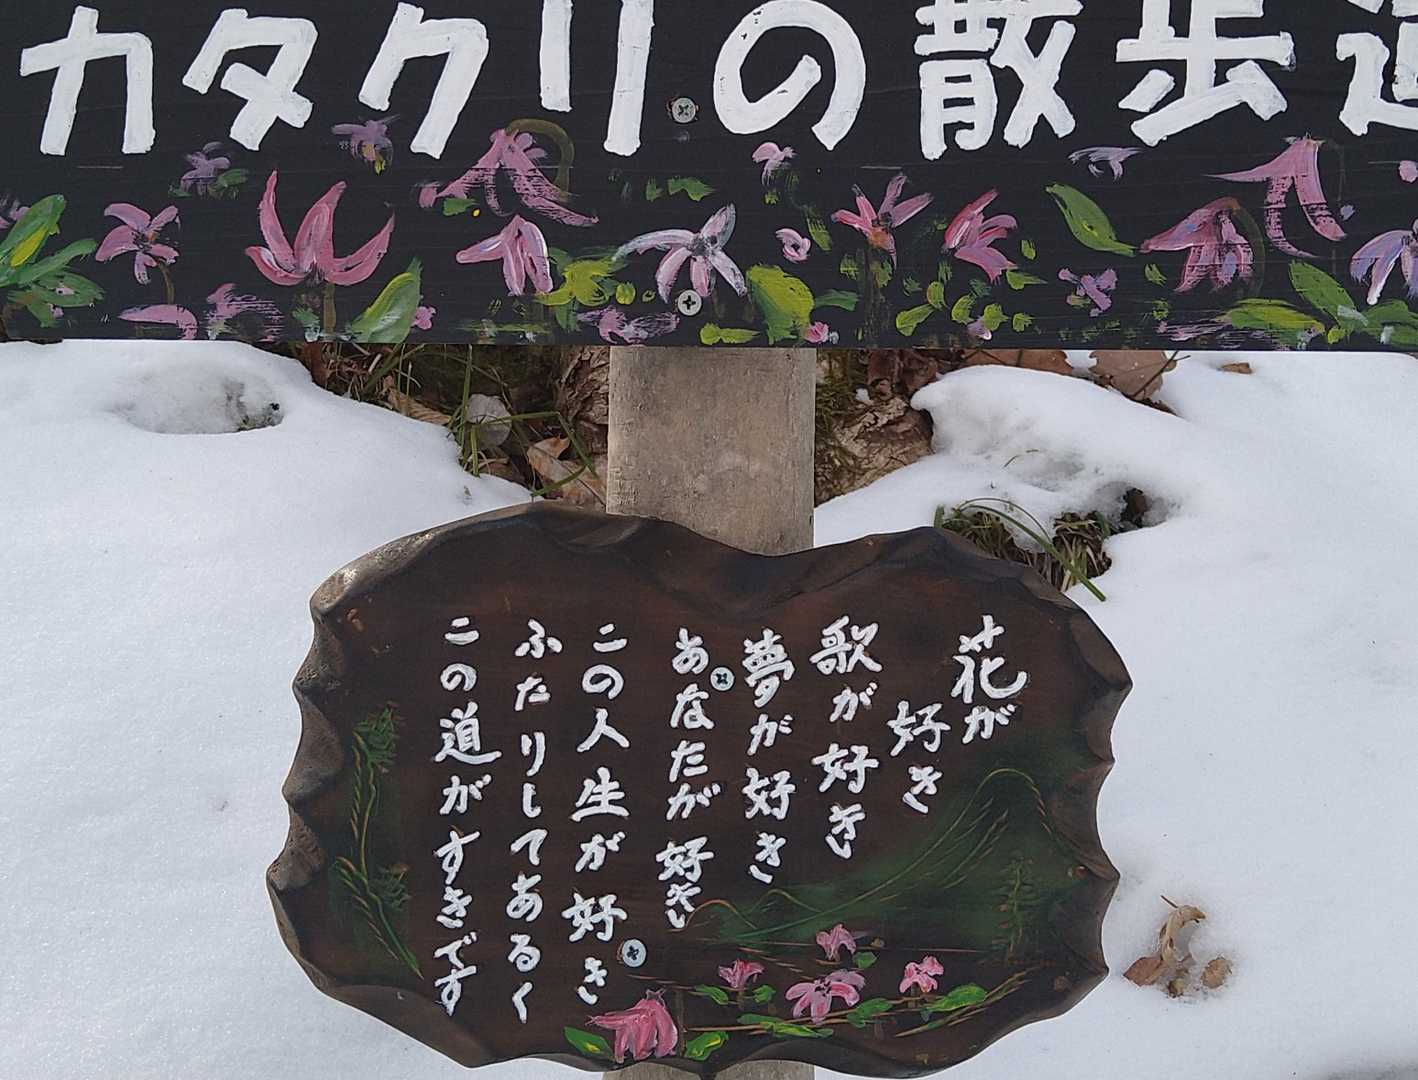 カタクリの散歩道
花が
好き
歌が好き
夢が好き
あなたが好き
この人生が好き
ふたりしてあるく
この道がすきです